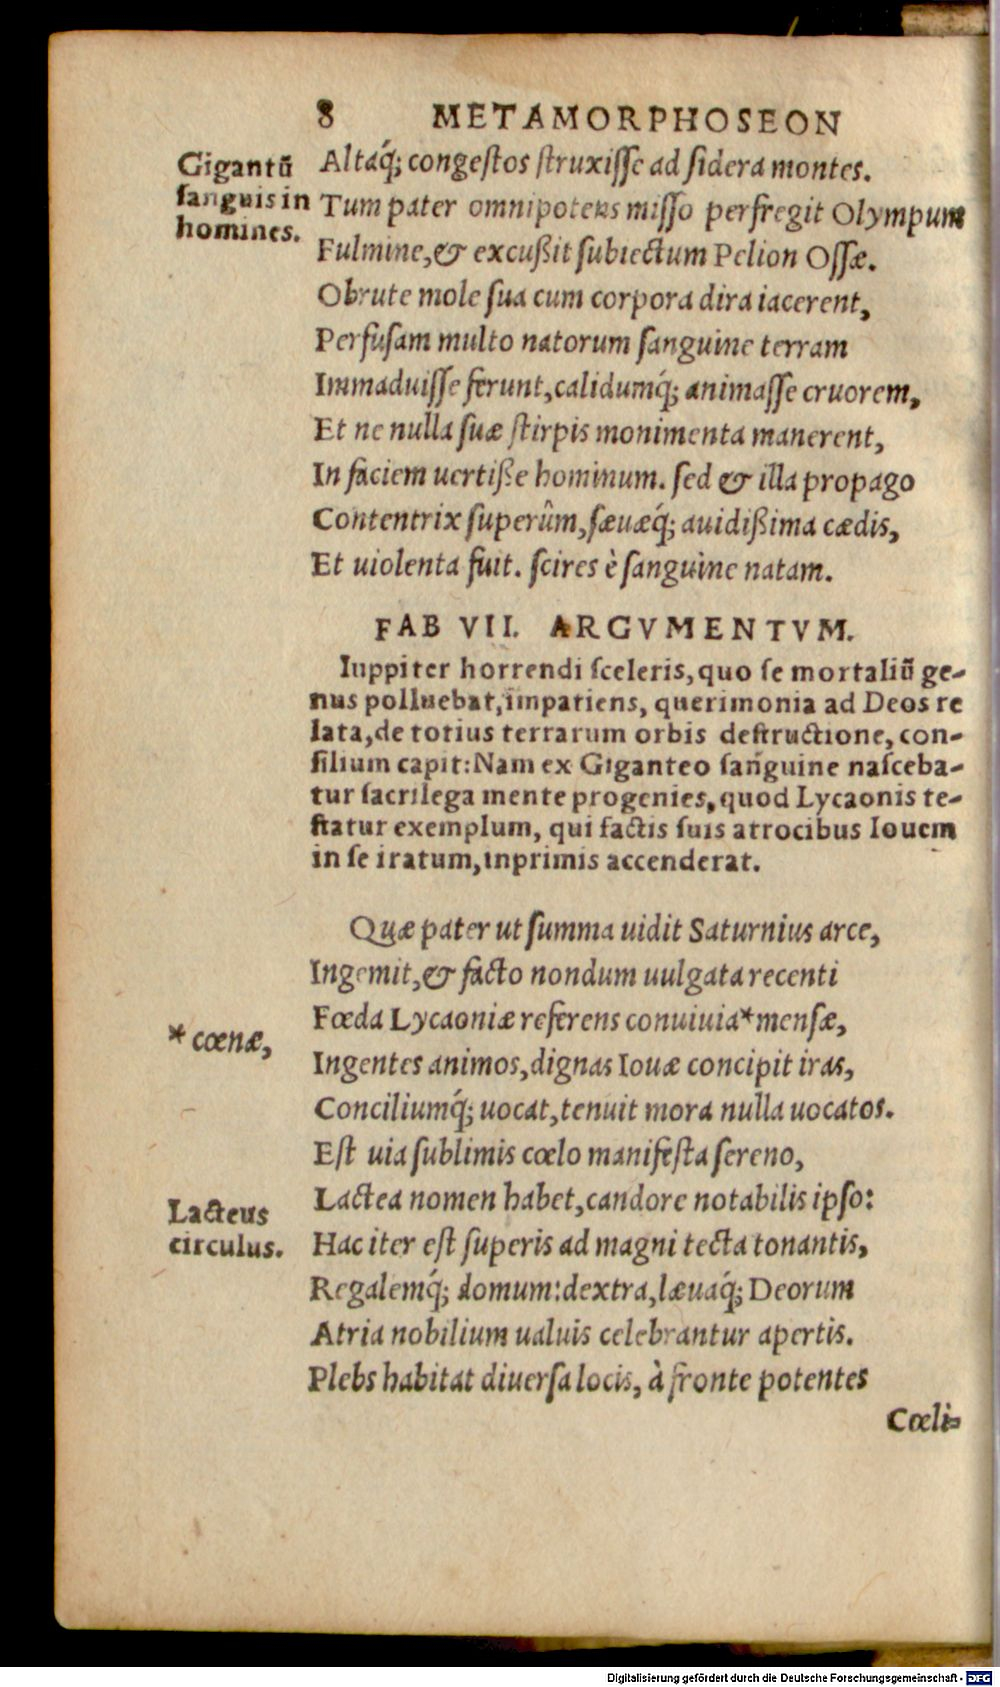 8 METAMORPHOSEON
Gigantũ
sanguis in
homines.
Altaq́; congestos struxisse ad sidera montes.
Tum pater omnipotens misso perfregit Olympum
Fulmine, & excußit subiectum Pelion Ossæ.
Obrute mole sua cum corpora dira iacerent,
Perfusam multo natorum sanguine terram
Immaduisse ferunt, calidumq́; animasse cruorem,
Et ne nulla suæ stirpis monimenta manerent,
In faciem uertiße hominum. sed & illa propago
Contentrix superûm, sæuæq́; auidißima cædis,
Et uiolenta fuit. scires è sanguine natam.
FAB VII. ARGVMENTVM.
Iuppiter horrendi sceleris, quo se mortaliũ ge-
nus polluebat, impatiens, querimonia ad Deos re
lata, de totius terrarum orbis destructione, con-
silium capit: Nam ex Giganteo sanguine nasceba-
tur sacrilega mente progenies, quod Lycaonis te-
statur exemplum, qui factis suis atrocibus Iouem
in se iratum, inprimis accenderat.
Quæ pater ut summa uidit Saturnius arce,
Ingemit, & facto nondum uulgata recenti
Fœda Lycaoniæ referens conuiuia* mensæ,
* cœnæ,
Ingentes animos, dignas Iouæ concipit iras,
Conciliumq́; uocat, tenuit mora nulla uocatos.
Est uia sublimis cœlo manifesta sereno,
Lactea nomen habet, candore notabilis ipso:
Lacteus
circulus.
Hac iter est superis ad magni tecta tonantis,
Regalemq́; domum: dextra, læuaq́; Deorum
Atria nobilium ualuis celebrantur apertis.
Plebs habitat diuersa locis, à fronte potentes
Cœli-
Digitalisierung gefördert durch die Deutsche Forschungsgemeinschaft - DFG